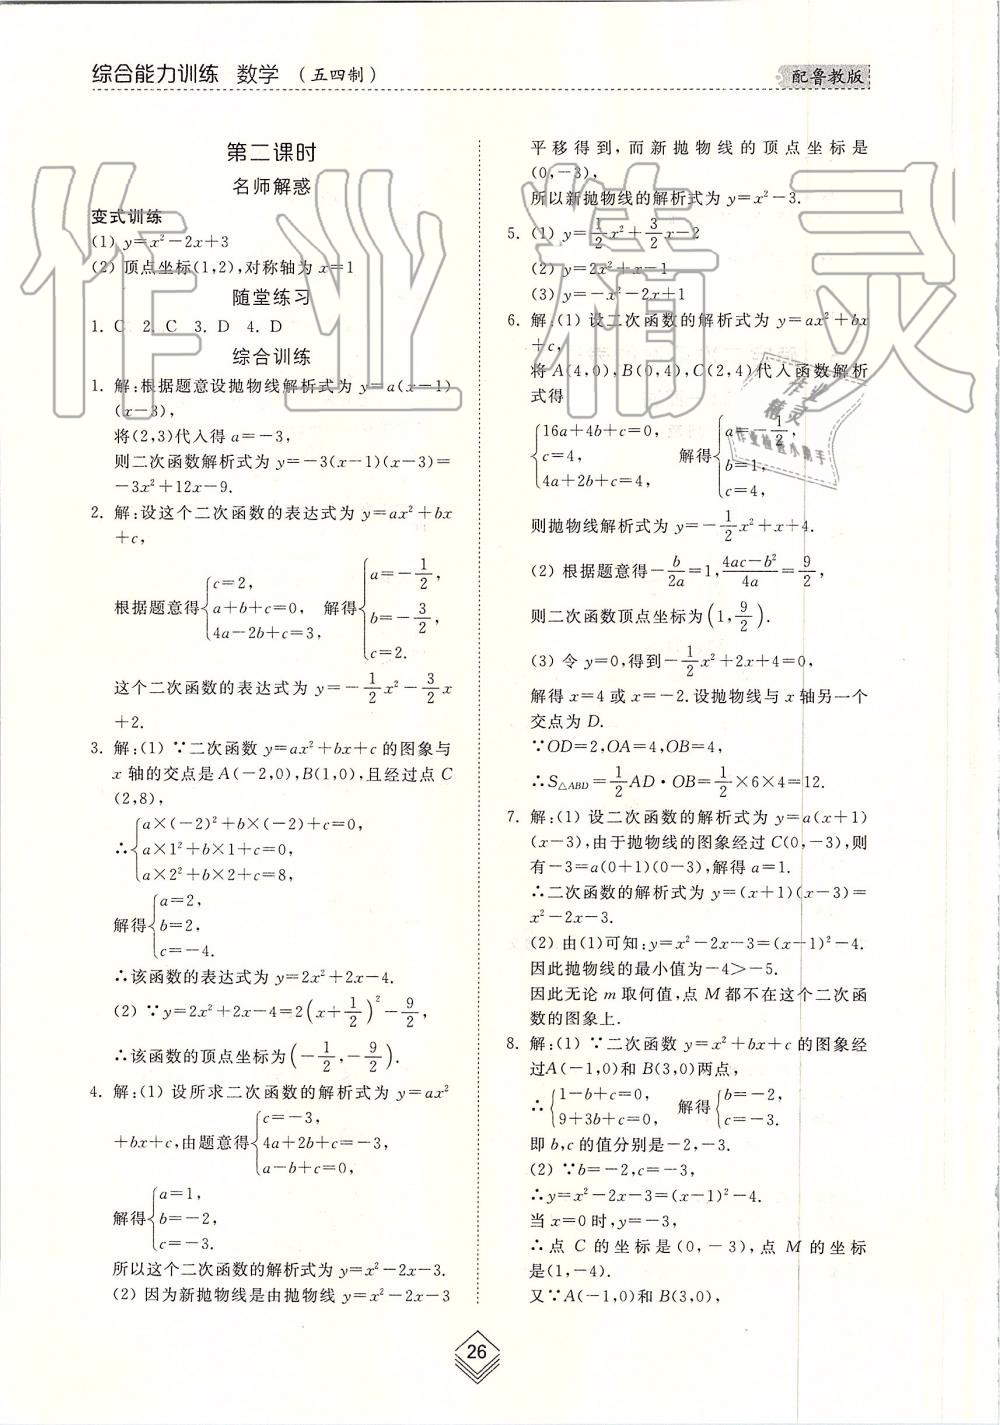 综合能力训练 数学 (五四制)
配鲁教版
第二课时
名师解惑
变式训练
(1) y=x²-2x+3
(2) 顶点坐标(1,2),对称轴为 x=1
随堂练习
1. C 2. C 3. D 4. D
综合训练
1. 解:根据题意设抛物线解析式为 y=a(x-1)
(x-3),
将(2,3)代入得 a=-3,
则二次函数解析式为 y=-3(x-1)(x-3)=
-3x²+12x-9.
2. 解:设这个二次函数的表达式为 y=ax²+bx
+c,
根据题意得{c=2, a+b+c=0, 4a-2b+c=3, 解得{a=-1/2, b=-3/2, c=2.
这个二次函数的表达式为 y=-1/2x²-3/2x
+2.
3. 解:(1) ∵二次函数 y=ax²+bx+c 的图象与
x 轴的交点是 A(-2,0),B(1,0),且经过点 C
(2,8),
∴{a×(-2)²+b×(-2)+c=0, a×1²+b×1+c=0, a×2²+b×2+c=8,
解得{a=2, b=2, c=-4.
∴该函数的表达式为 y=2x²+2x-4.
(2) ∵y=2x²+2x-4=2(x+1/2)²-9/2,
∴该函数的顶点坐标为(-1/2,-9/2).
4. 解:(1) 设所求二次函数的解析式为 y=ax²
+bx+c,由题意得{c=-3, 4a+2b+c=-3, a-b+c=0,
解得{a=1, b=-2, c=-3.
所以这个二次函数的解析式为 y=x²-2x-3.
(2) 因为新抛物线是由抛物线 y=x²-2x-3
平移得到,而新抛物线的顶点坐标是
(0,-3),
所以新抛物线的解析式为 y=x²-3.
5. (1) y=1/2x²+3/2x-2
(2) y=2x²+x-1
(3) y=-x²-2x+1
6. 解:(1) 设二次函数的解析式为 y=ax²+bx
+c,
将 A(4,0),B(0,4),C(2,4)代入函数解析
式得
{16a+4b+c=0, c=4, 4a+2b+c=4, 解得{a=-1/2, b=1, c=4,
则抛物线解析式为 y=-1/2x²+x+4.
(2) 根据题意得-b/2a=1,4ac-b²/4a=9/2,
则二次函数顶点坐标为(1,9/2).
(3) 令 y=0,得到-1/2x²+2x+4=0,
解得 x=4 或 x=-2.设抛物线与 x 轴另一个
交点为 D.
∵OD=2,OA=4,OB=4,
∴S△ABD=1/2AD·OB=1/2×6×4=12.
7. 解:(1) 设二次函数的解析式为 y=a(x+1)
(x-3),由于抛物线的图象经过 C(0,-3),则
有-3=a(0+1)(0-3),解得 a=1.
∴二次函数的解析式为 y=(x+1)(x-3)=
x²-2x-3.
(2) 由(1)可知:y=x²-2x-3=(x-1)²-4.
因此抛物线的最小值为-4>-5.
因此无论 m 取何值,点 M 都不在这个二次函
数的图象上.
8. 解:(1) ∵二次函数 y=x²+bx+c 的图象经
过A(-1,0)和 B(3,0)两点,
∴{1-b+c=0, 9+3b+c=0, 解得{b=-2, c=-3.
即 b,c 的值分别是-2,-3.
(2) ∵b=-2,c=-3,
∴y=x²-2x-3=(x-1)²-4.
当 x=0 时,y=-3,
∴点 C 的坐标是(0,-3),点 M 的坐标
是(1,-4).
又∵A(-1,0)和 B(3,0),
26
作业精灵
作业
精灵
作业检查小助手